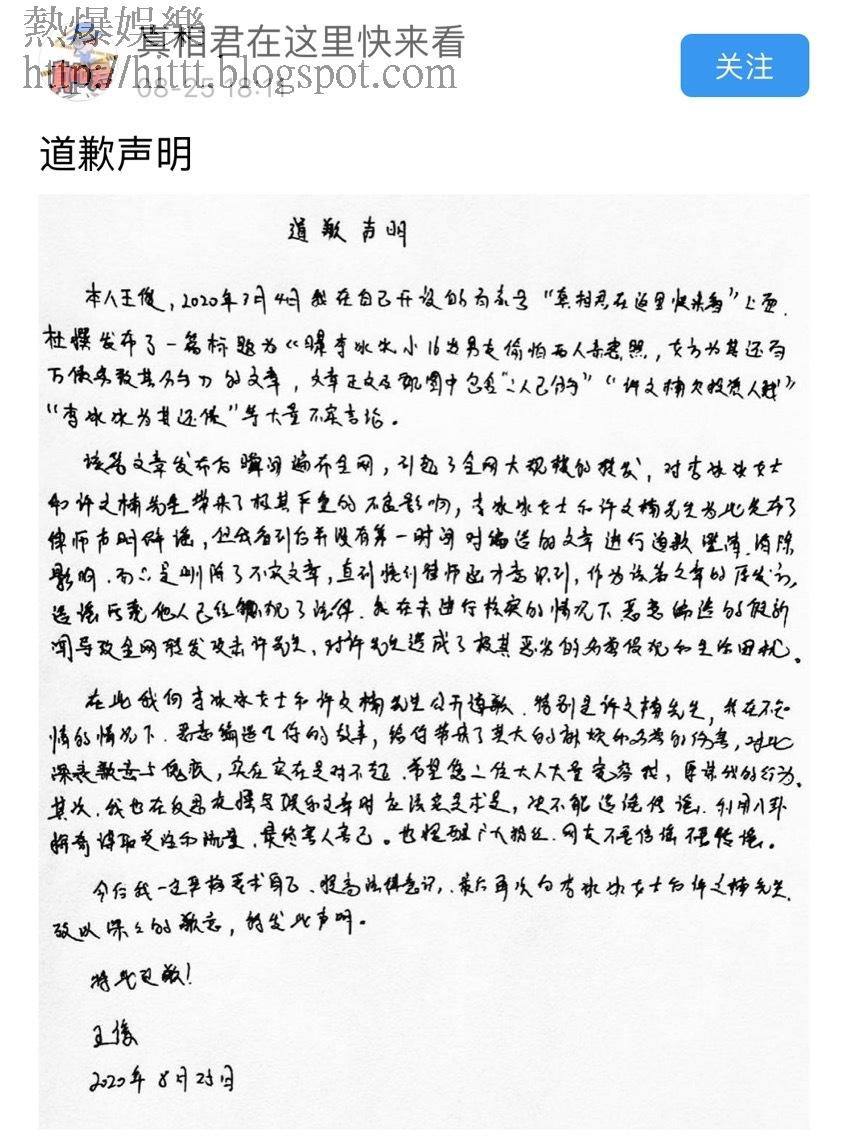 熱爆娛樂
真相君在这里快来看
http://hittt.blogspot.com
08-25 18:11
关注
道歉声明
道歉声明
本人王俊,2020年7月4日我在自己开设的百家号“真相君在这里快来看”上面,
杜撰发布了一篇标题为《曝李冰冰小16岁男友偷拍两人亲密照,女方为其还百
万债务致其分手》的文章,文章正文及配图中包含“二人已分手”“许文楠欠投资人钱”
“李冰冰为其还债”等大量不实言论。
该篇文章发布后瞬间遍布全网,引起了全网大规模的转发,对李冰冰女士
和许文楠先生带来了极其严重的不良影响,李冰冰女士和许文楠先生为此发布了
律师声明辟谣,但我看到后并没有第一时间对编造的文章进行道歉澄清,消除
影响,而只是删除了不实文章,直到接到律师函才意识到,作为该篇文章的原发方,
造谣污蔑他人已经触犯了法律。我在未进行核实的情况下恶意编造的假新
闻导致全网转发攻击许先生,对许先生造成了极其恶劣的名誉侵犯和生活困扰。
在此我向李冰冰女士和许文楠先生公开道歉,特别是许文楠先生,我在不知
情的情况下,恶意编造了你的故事,给你带来了莫大的麻烦和名誉的伤害,对此
深表歉意与愧疚,实在实在是对不起,希望您二位大人大量宽容我,原谅我的行为。
其次,我也在反思在撰写娱乐文章时应该实事求是,决不能造谣传谣,利用八卦
猎奇谋取关注和流量,最终害人害己。也提醒广大粉丝、网友不信谣不传谣。
今后我一定严格要求自己、提高法律意识,最后再次向李冰冰女士和许文楠先生
致以深深的歉意,特发此声明。
特此致歉!
王俊
2020年8月25日